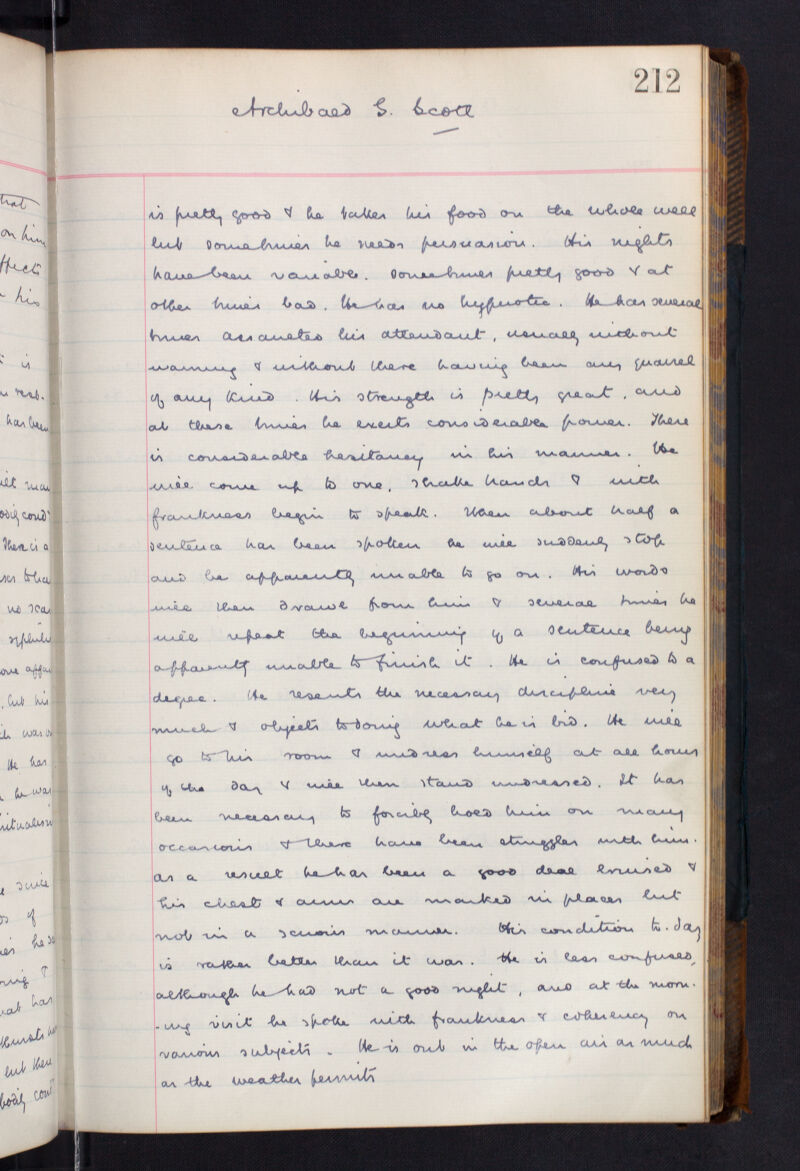 212
Archibald G. Scott
is pretty good & he takes his food on the whole well
but sometimes he needs persuasion. His nights
have been variable. sometimes pretty good & at
other times bad. He has no hypnotic. He has several
times assaulted his attendant, usually without
warning & without there having been any quarrel
of any kind. His strength is pretty great, and
at these times he exerts considerable power. There
is considerable hesitancy in his manner. He
will come up to one, shake hands & with
frankness begin to speak. When about half a
sentence has been spoken he will suddenly stop
and be apparently unable to go on. His words
will then drawl from him & several times he
will repeat the beginning of a sentence being
apparently unable to finish it. He is confused to a
degree. He resents the necessary discipline very
much & objects to doing what he is bid. He will
go to his room & undress himself at all hours
of the day & will then stand undressed. It has
been necessary to forcibly hold him on many
occasions & there have been struggles with him.
as a result he has been a good deal bruised &
his chest & arms are marked in places but
not in a serious manner. His condition to-day
is rather better than it was. He is less confused,
although he had not a good night, and at the morn-
-ing visit he spoke with frankness & coherency on
various subjects. He is out in the open air as much
as the weather permits